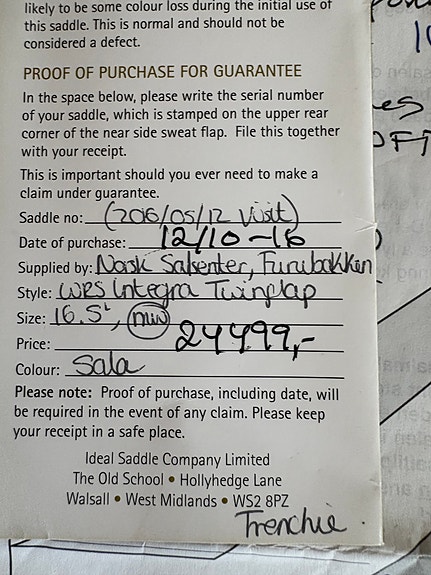 likely to be some colour loss during the initial use of
this saddle. This is normal and should not be
considered a defect.
PROOF OF PURCHASE FOR GUARANTEE
In the space below, please write the serial number
of your saddle, which is stamped on the upper rear
corner of the near side sweat flap. File this together
with your receipt.
This is important should you ever need to make a
claim under guarantee.
Saddle no: (2016/05/12 Visit)
Date of purchase: 12/10-16
Supplied by: Norsk Salsenter, Furubakken
Style: WRS Integra Twinflap
Size: 16.5", MW
Price: 24499,-
Colour: Sala
Please note: Proof of purchase, including date, will
be required in the event of any claim. Please keep
your receipt in a safe place.
Ideal Saddle Company Limited
The Old School • Hollyhedge Lane
Walsall • West Midlands • WS2 8PZ
Trenchie